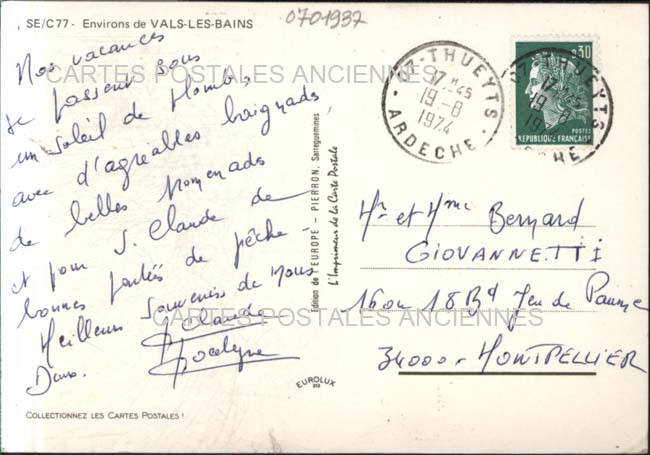 SE/C77 - Environs de VALS-LES-BAINS
0701937
Nos vacances
se passent sous
un soleil de plomb,
avec d'agréables baignads
de belles promenads
et pour J. Claude de
bonnes parties de pêche -
Meilleurs souvenirs de nous
Deux.
J Claude
Jocelyne
CARTES POSTALES ANCIENNES
CARTES POSTALES ANCIENNES
COLLECTIONNEZ LES CARTES POSTALES !
Edition de l'EUROPE - PIERRON, Sarreguemines
L'Imprimeur de la Carte Postale
EUROLUX
07-THUEYTS
17 H 45
19-8
1974
ARDECHE
0,30
POSTES
REPUBLIQUE FRANÇAISE
07-THUEYTS
17 H 45
19-8
Mr et Mme Bernard
GIOVANNETTI
16 ou 18 Bd Jeu de Paume
34000 - MONTPELLIER